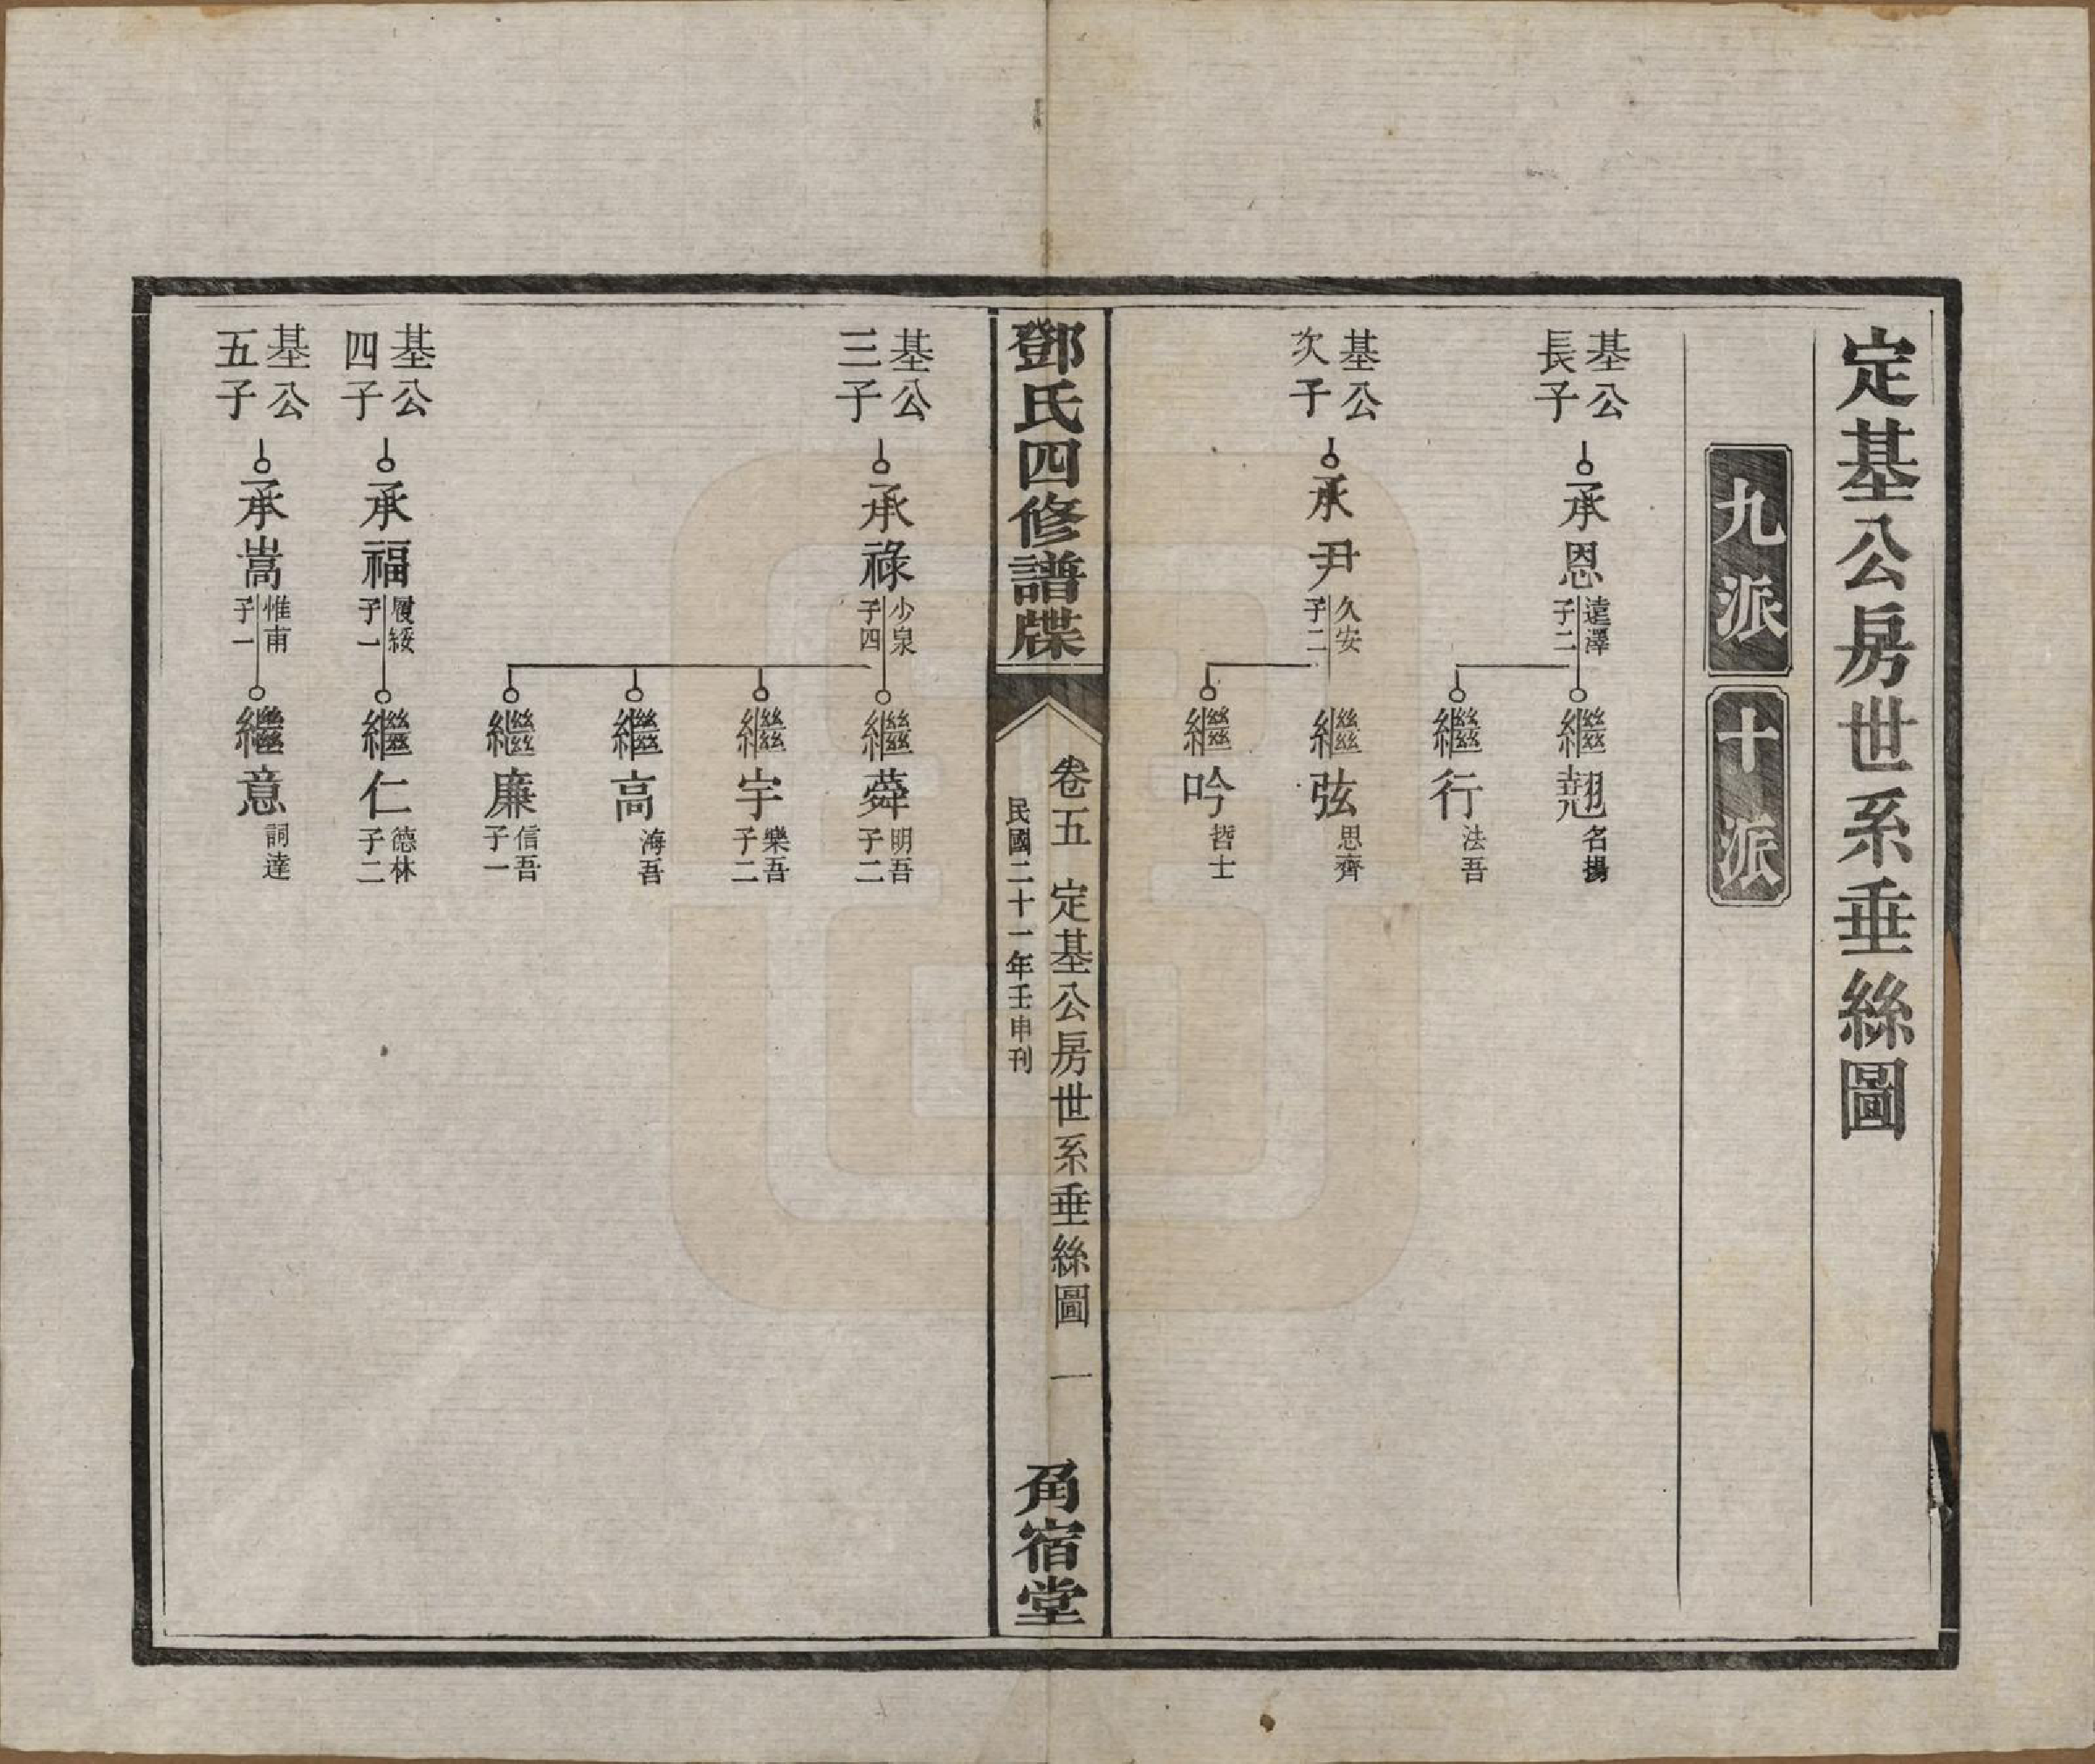 定基公房世系垂絲圖
九派
十派
基公長子
承恩
遠澤
子二
繼翹
名揚
繼行
法吾
基公次子
承尹
久安
子二
繼弦
思齊
繼吟
哲士
鄧氏四修譜牒
卷五 定基公房世系垂絲圖 一
民國二十一年壬申刊
角宿堂
基公三子
承祿
少泉
子四
繼舜
明吾
子二
繼宇
樂吾
子二
繼高
海吾
繼廉
信吾
子一
基公四子
承福
履綏
子一
繼仁
德林
子二
基公五子
承嵩
惟甫
子一
繼意
詞達